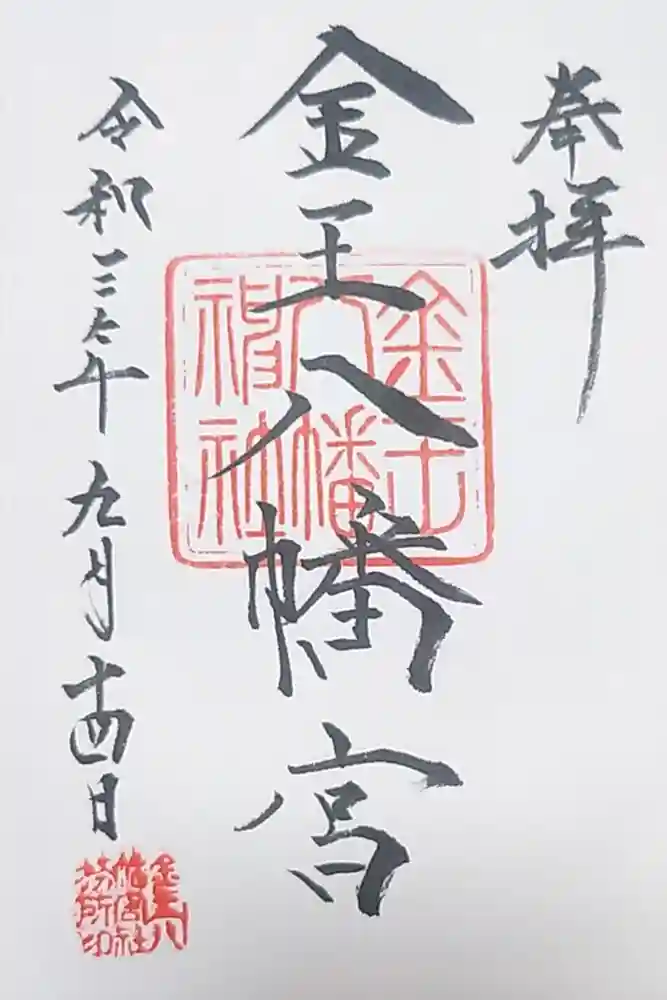 奉拝
金王八幡宮
令和三年九月十四日
金王
八幡
神社
金王八
幡宮社
務所印